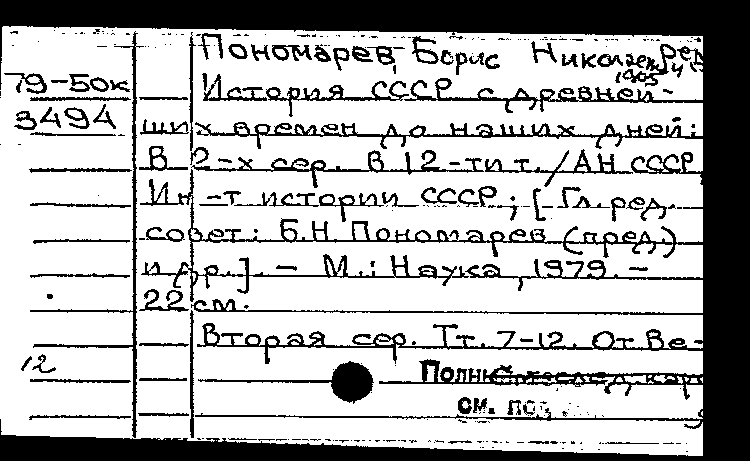 Пономарев, Борис Николаевич Ред.
1905
79-50к История СССР с древней-
3494 ших времен до наших дней:
В 2-х сер. В 12-ти т. / АН СССР,
Ин-т истории СССР; [Гл. ред.
совет: Б.Н. Пономарев (пред.)
и др.]. - М.: Наука, 1979. -
22 см.
Вторая сер. Тт. 7-12. От Ве-
12
см. под